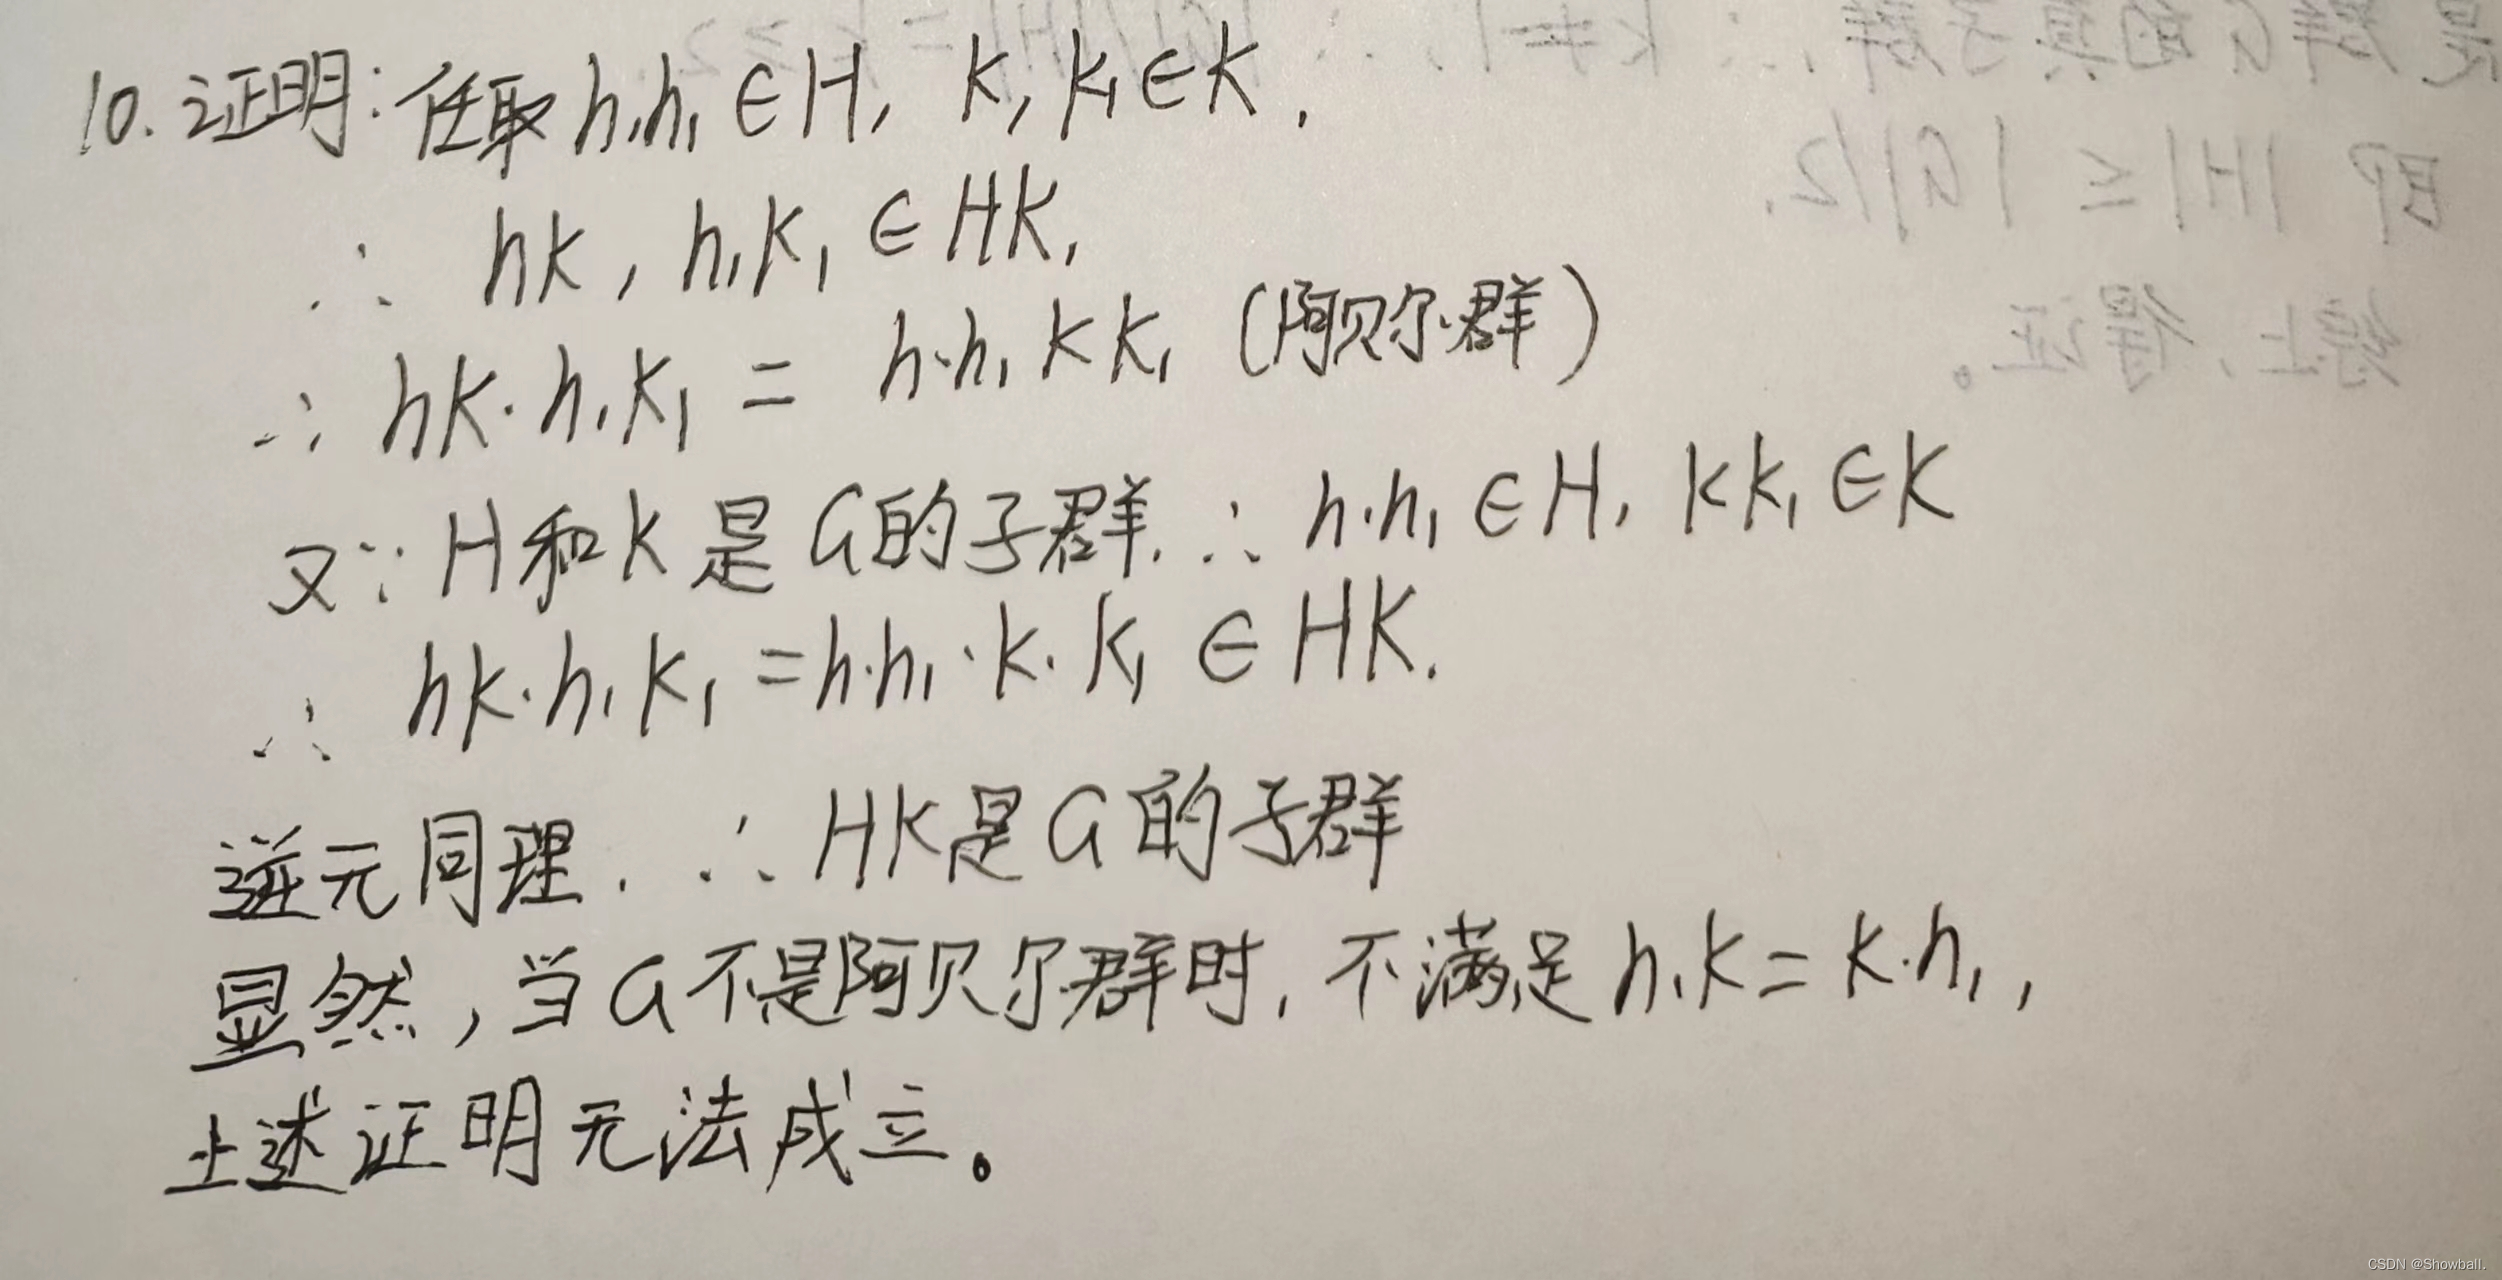 10. 证明: 任取 h, h₁ ∈ H, k, k₁ ∈ K.
∴ hk, h₁k₁ ∈ HK,
∴ hk·h₁k₁ = h·h₁kk₁ (阿贝尔群)
又∵ H和K是G的子群. ∴ h·h₁ ∈ H, kk₁ ∈ K
∴ hk·h₁k₁ = h·h₁·k·k₁ ∈ HK.
逆元同理. ∴ HK是G的子群
显然, 当G不是阿贝尔群时, 不满足 h₁k = k·h₁,
上述证明无法成立。
是群G的真子群, ∴ k≠1, ∴ |G|/|H| = k ≥ 2.
即 |H| ≤ |G|/2.
综上, 得证。
CSDN @Showball.